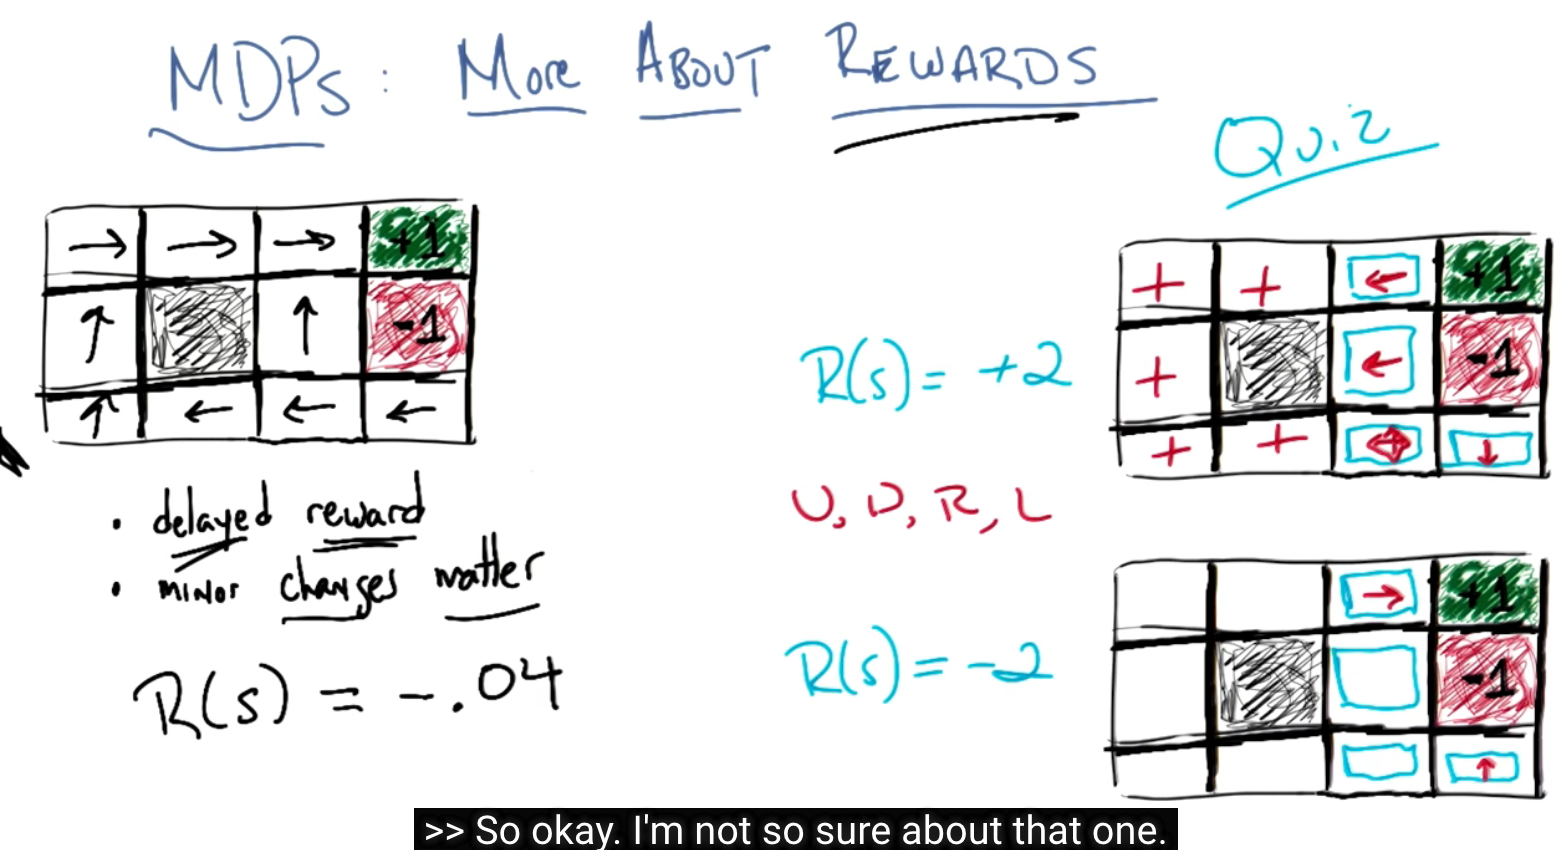 MDPs: More About Rewards
Quiz
→ → → +1
↑ ↑ -1
↑ ← ← ←
• delayed reward
• minor changes matter
R(s) = -.04
R(s) = +2
+ + ← +1
+ ← -1
+ + ↓
U, D, R, L
R(s) = -2
→ +1
-1
↑
>> So okay. I'm not so sure about that one.